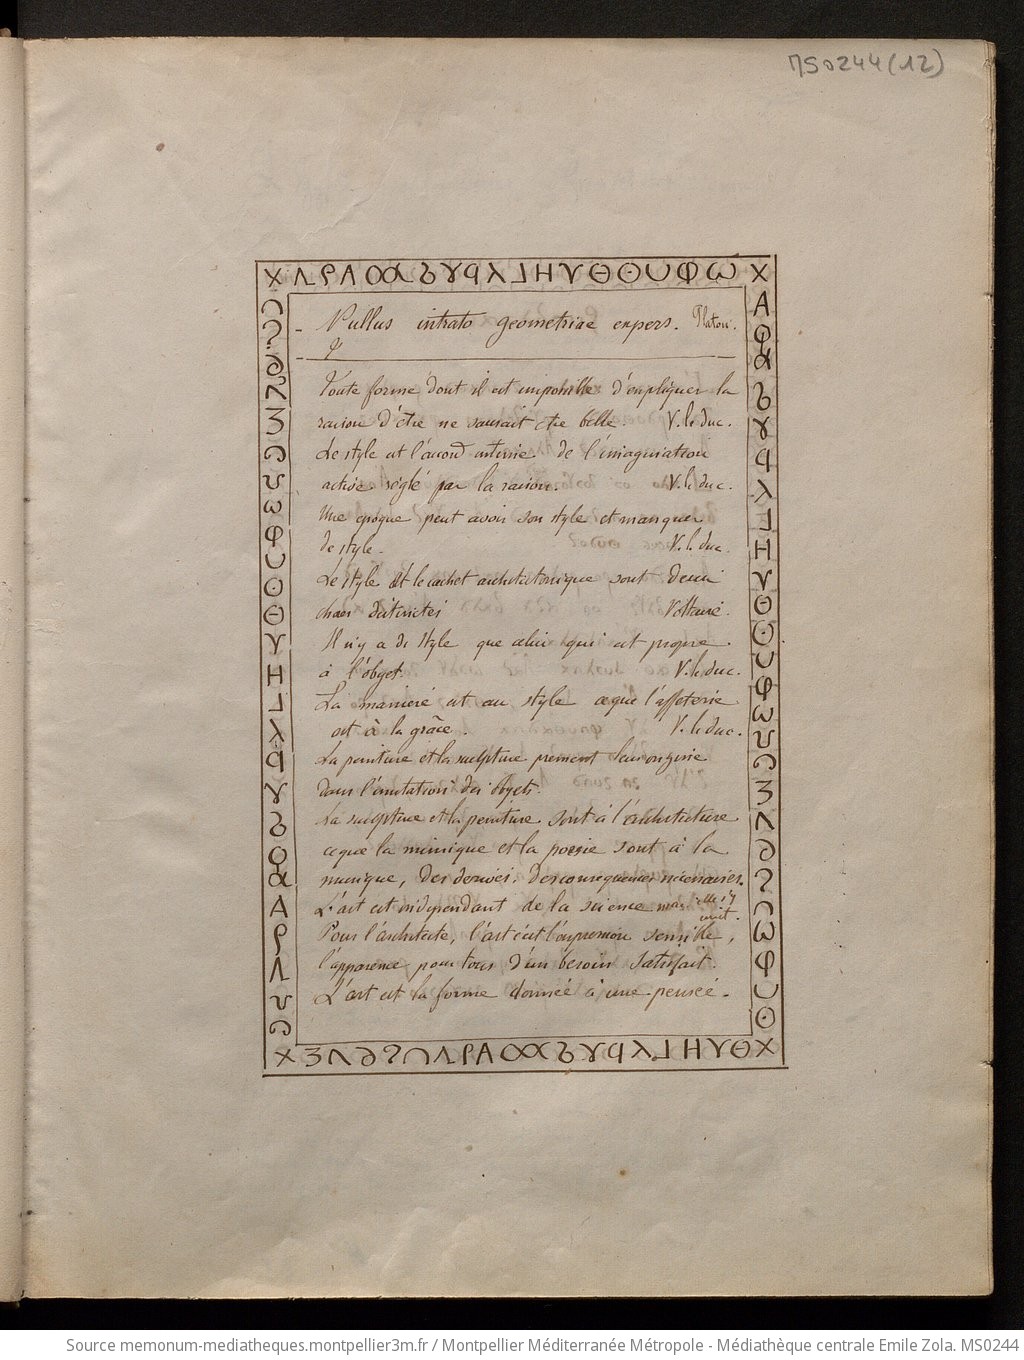 MS0244(12)
Nullus intrato geometriae expers. Platon.
Toute forme dont il est impossible d'expliquer la
raison d'être ne saurait être belle. V. le duc.
Le style est l'accord intime de l'imagination
active réglé par la raison. V. le duc.
Une époque peut avoir son style et manquer
de style. V. le duc.
Le style et le cachet architectonique sont deux
choses distinctes Voltaire.
Il n'y a de style que celui qui est propre
à l'objet. V. le duc.
La manière est au style ce que l'affeterie
est à la grâce. V. le duc.
La peinture et la sculpture prennent leur origine
dans l'imitation des objets.
La sculpture et la peinture sont à l'architecture
ce que la mimique et la poesie sont à la
musique, des dérivés, des conséquences nécessaires.
L'art est indépendant de la science mais elle s'y
unit.
Pour l'architecte, l'art c'est l'expression sensible,
l'apparence pour tous d'un besoin satisfait.
L'art est la forme donnée à une pensée.
Source memonum-mediatheques.montpellier3m.fr / Montpellier Méditerranée Métropole - Médiathèque centrale Emile Zola. MS0244